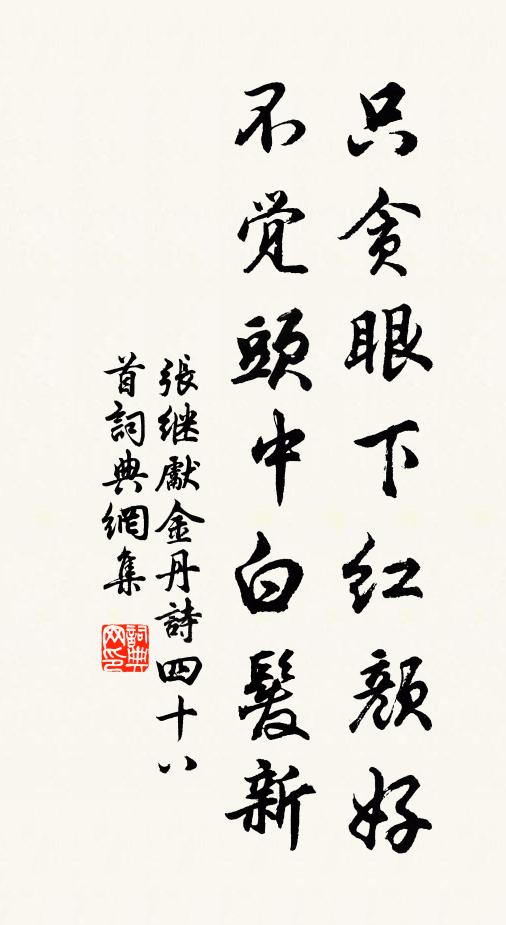 只贪眼下红颜好
不觉頭中白髮新
張继獻金丹詩四十八
首詞典網集
詞典
网印